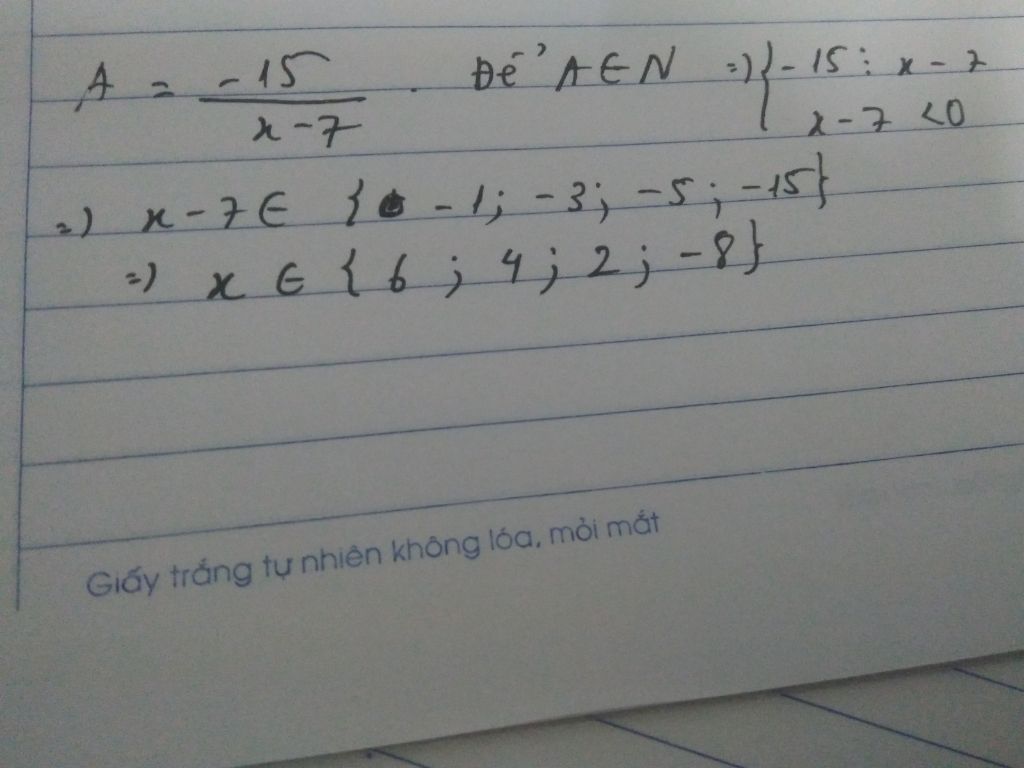 A = -15 / x - 7 . Để A ∈ N => { -15 ⋮ x - 7
x - 7 < 0
=> x - 7 ∈ { -1; -3; -5; -15}
=> x ∈ { 6 ; 4 ; 2 ; -8}
Giấy trắng tự nhiên không lóa, mỏi mắt